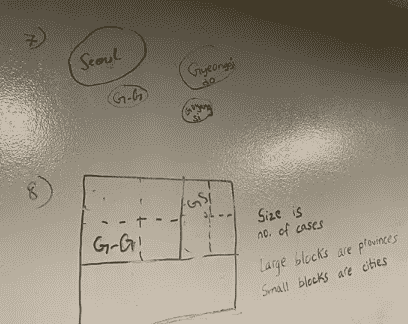 7)
Seoul
Gyeonggi
do
G-G
si
8)
GS
G-G
Size is
no. of cases
Large blocks are provinces
Small blocks are cities